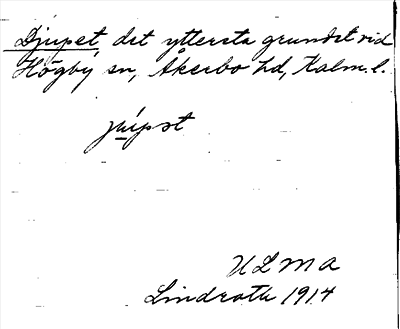 Djupet, det yttersta grundet vid
Högby sn, Åkerbo hd, Kalm. l.
ULMA
Lindroth 1914